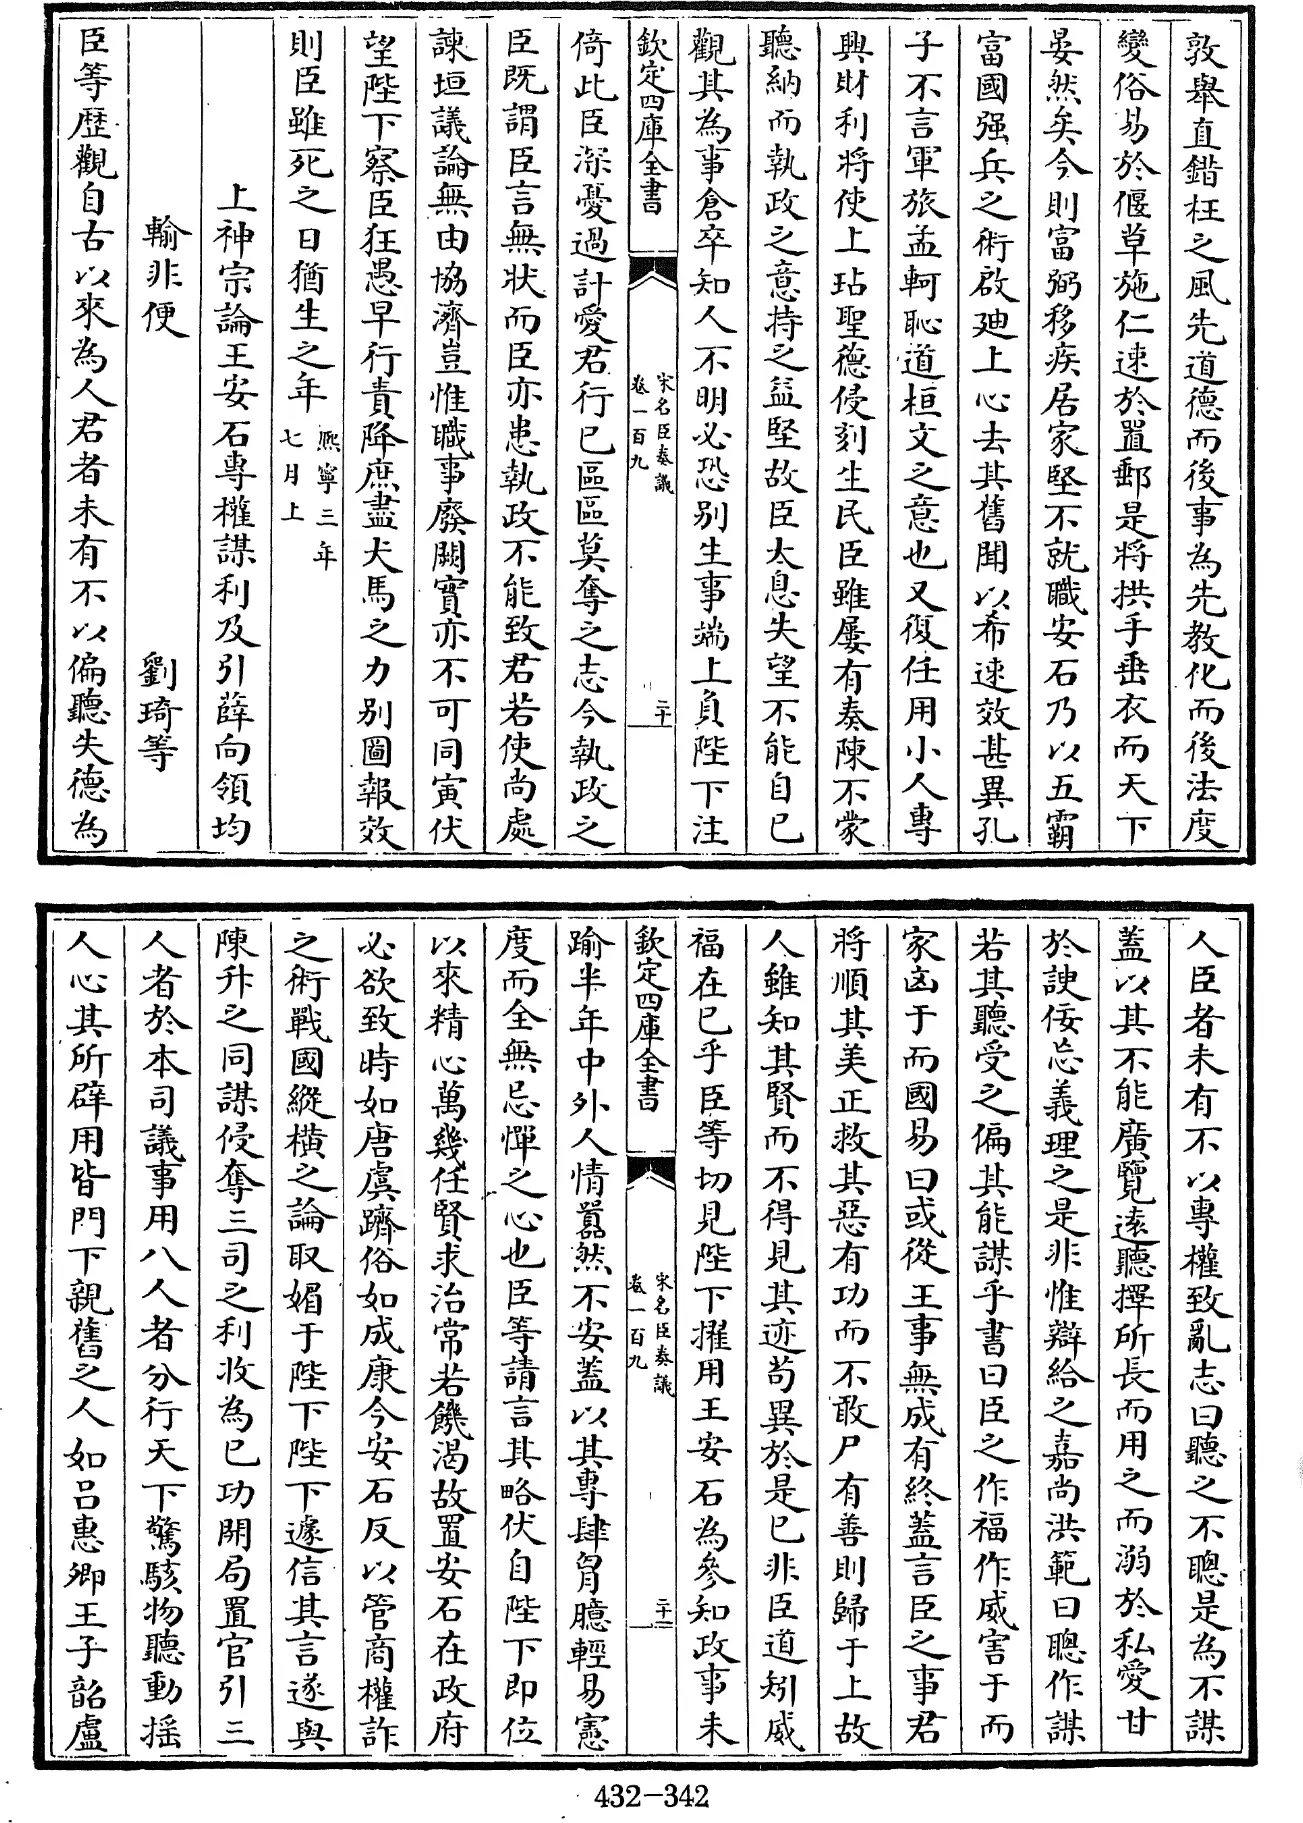 敦舉直錯枉之風先道德而後事為先教化而後法度
變俗易於偃草施仁速於置郵是將拱手垂衣而天下
晏然矣今則富弼移疾居家堅不就職安石乃以五霸
富國强兵之術啟廸上心去其舊聞以希速效甚異孔
子不言軍旅孟軻恥道桓文之意也又復任用小人專
興財利將使上玷聖德侵刻生民臣雖屢有奏陳不蒙
聽納而執政之意持之益堅故臣太息失望不能自已
觀其為事倉卒知人不明必恐别生事端上負陛下注
欽定四庫全書
宋名臣奏議
卷一百九
二十
倚此臣深憂過計愛君行已區區莫奪之志今執政之
臣既謂臣言無狀而臣亦患執政不能致君若使尚處
諫垣議論無由協濟豈惟職事廢闕實亦不可同寅伏
望陛下察臣狂愚早行責降庶盡犬馬之力别圖報效
則臣雖死之日猶生之年熙寧三年
七月上
上神宗論王安石專權謀利及引薛向領均
輸非便
劉琦等
臣等歷觀自古以來為人君者未有不以偏聽失德為
人臣者未有不以專權致亂志曰聽之不聰是為不謀
蓋以其不能廣覽遠聽擇所長而用之而溺於私愛甘
於諛佞忘義理之是非惟辯給之嘉尚洪範曰聰作謀
若其聽受之偏其能謀乎書曰臣之作福作威害于而
家凶于而國易曰或從王事無成有終蓋言臣之事君
將順其美正救其惡有功而不敢尸有善則歸于上故
人雖知其賢而不得見其迹苟異於是已非臣道矧威
福在已乎臣等切見陛下擢用王安石為參知政事未
欽定四庫全書
宋名臣奏議
卷一百九
二十一
踰半年中外人情囂然不安蓋以其專肆胷臆輕易憲
度而全無忌憚之心也臣等請言其略伏自陛下即位
以來精心萬幾任賢求治常若饑渴故置安石在政府
必欲致時如唐虞躋俗如成康今安石反以管商權詐
之術戰國縱横之論取媚于陛下陛下遽信其言遂與
陳升之同謀侵奪三司之利收為已功開局置官引三
人者於本司議事用八人者分行天下驚駭物聽動揺
人心其所辟用皆門下親舊之人如吕惠卿王子韶盧
432-342